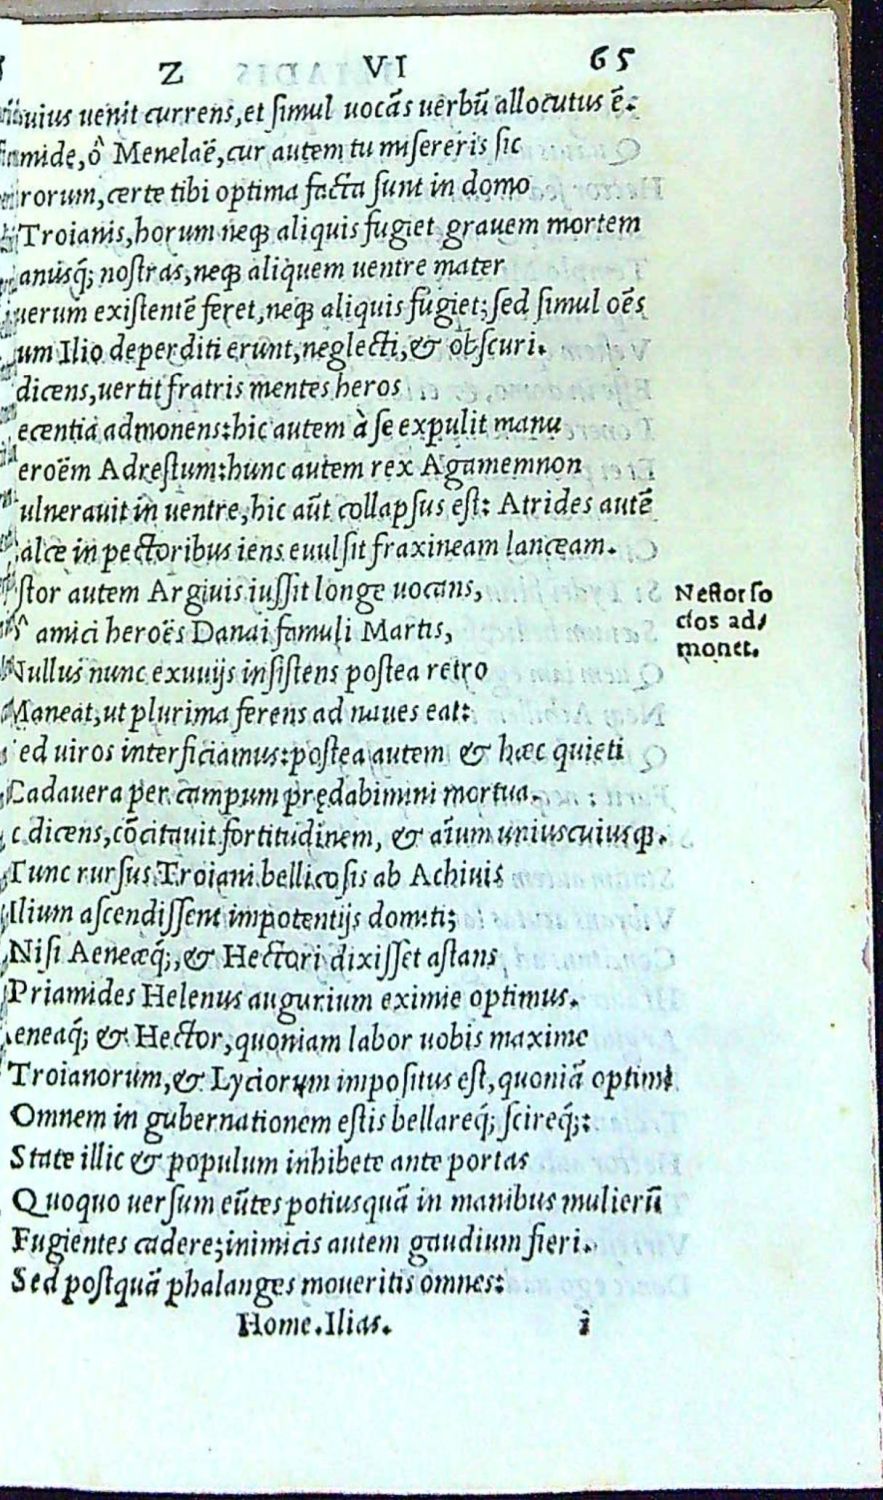 Z VI 65
uius uenit currens, et simul uocãs uerbũ allocutus ẽ.
mide, ô Menelaẽ, cur autem tu misereris sic
rorum, certe tibi optima facta sunt in domo
Troianis, horum neq; aliquis fugiet grauem mortem
anusq́; nostras, neq; aliquem uentre mater
uerum existentẽ feret, neq; aliquis fugiet; sed simul oẽs
um Ilio deperditi erunt, neglecti, & obscuri.
dicens, uertit fratris mentes heros
ecentia admonens: hic autem à se expulit manu
eroẽm Adrestum: hunc autem rex Agamemnon
ulnerauit in uentre, hic aũt collapsus est: Atrides autẽ
alce in pectoribus iens euulsit fraxineam lanceam.
stor autem Argiuis iussit longe uocans,
amici heroẽs Danai famuli Martis,
Nullus nunc exuuijs insistens postea retro
Maneat, ut plurima ferens ad naues eat:
ed uiros interficiamus: postea autem & hæc quieti
Cadauera per campum prędabimini mortua.
c dicens, cõcitauit fortitudinem, & aĩum uniuscuiusq;.
Tunc rursus Troiani bellicosis ab Achiuis
Ilium ascendissent impotentijs domiti;
Nisi Aeneæq́;, & Hectori dixisset astans
Priamides Helenus augurium eximie optimus.
eneaq́; & Hector, quoniam labor uobis maxime
Troianorum, & Lyciorum impositus est, quoniã optimi
Omnem in gubernationem estis bellareq́; scireq́;:
State illic & populum inhibete ante portas
Quoquo uersum eũtes potiusquã in manibus mulierũ
Fugientes cadere; inimicis autem gaudium fieri.
Sed postquã phalanges moueritis omnes:
Home. Ilias. i
Nestor so
cios ad/
monet.